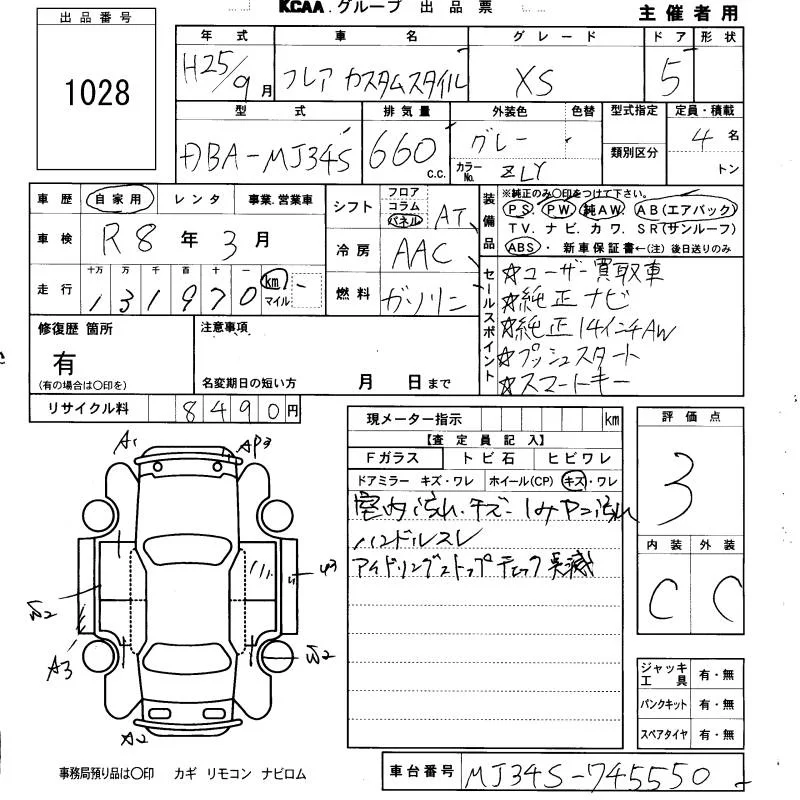 KCAA.グループ 出品票
主催者用
出品番号
1028
年式 車名 グレード ドア 形状
H25/9月 フレア カスタムスタイル XS 5
型式 排気量 外装色 色替 型式指定 定員・積載
DBA-MJ34S 660 c.c. グレー 4名
カラーNo. ZLY 類別区分 トン
車歴 自家用 レンタ 事業.営業車
シフト フロア コラム パネル AT
車検 R8年3月
冷房 AAC
走行 十万 万 千 百 十 一
131970 km マイル
燃料 ガソリン
装備品
※純正のみ〇印をつけて下さい。
PS. PW. 純AW. AB(エアバック)
TV. ナビ. カワ. SR(サンルーフ)
ABS. 新車保証書←(注) 後日送りのみ
セールスポイント
☆ユーザー買取車
☆純正ナビ
☆純正14インチAW
☆プッシュスタート
☆スマートキー
修復歴 箇所
有
(有の場合は〇印を)
注意事項
名変期日の短い方 月 日まで
リサイクル料 8490円
現メーター指示 km
【査定員記入】
Fガラス トビ石 ヒビワレ
ドアミラー キズ・ワレ ホイール(CP) キズ・ワレ
室内汚れ・キズ・シミヤニ汚れ
ハンドルスレ
アイドリングストップチェック点滅
評価点
3
内装 外装
C C
A1
AP3
A3
A2
ジャッキ工具 有・無
パンクキット 有・無
スペアタイヤ 有・無
事務局預り品は〇印 カギ リモコン ナビロム
車台番号 MJ34S-745550